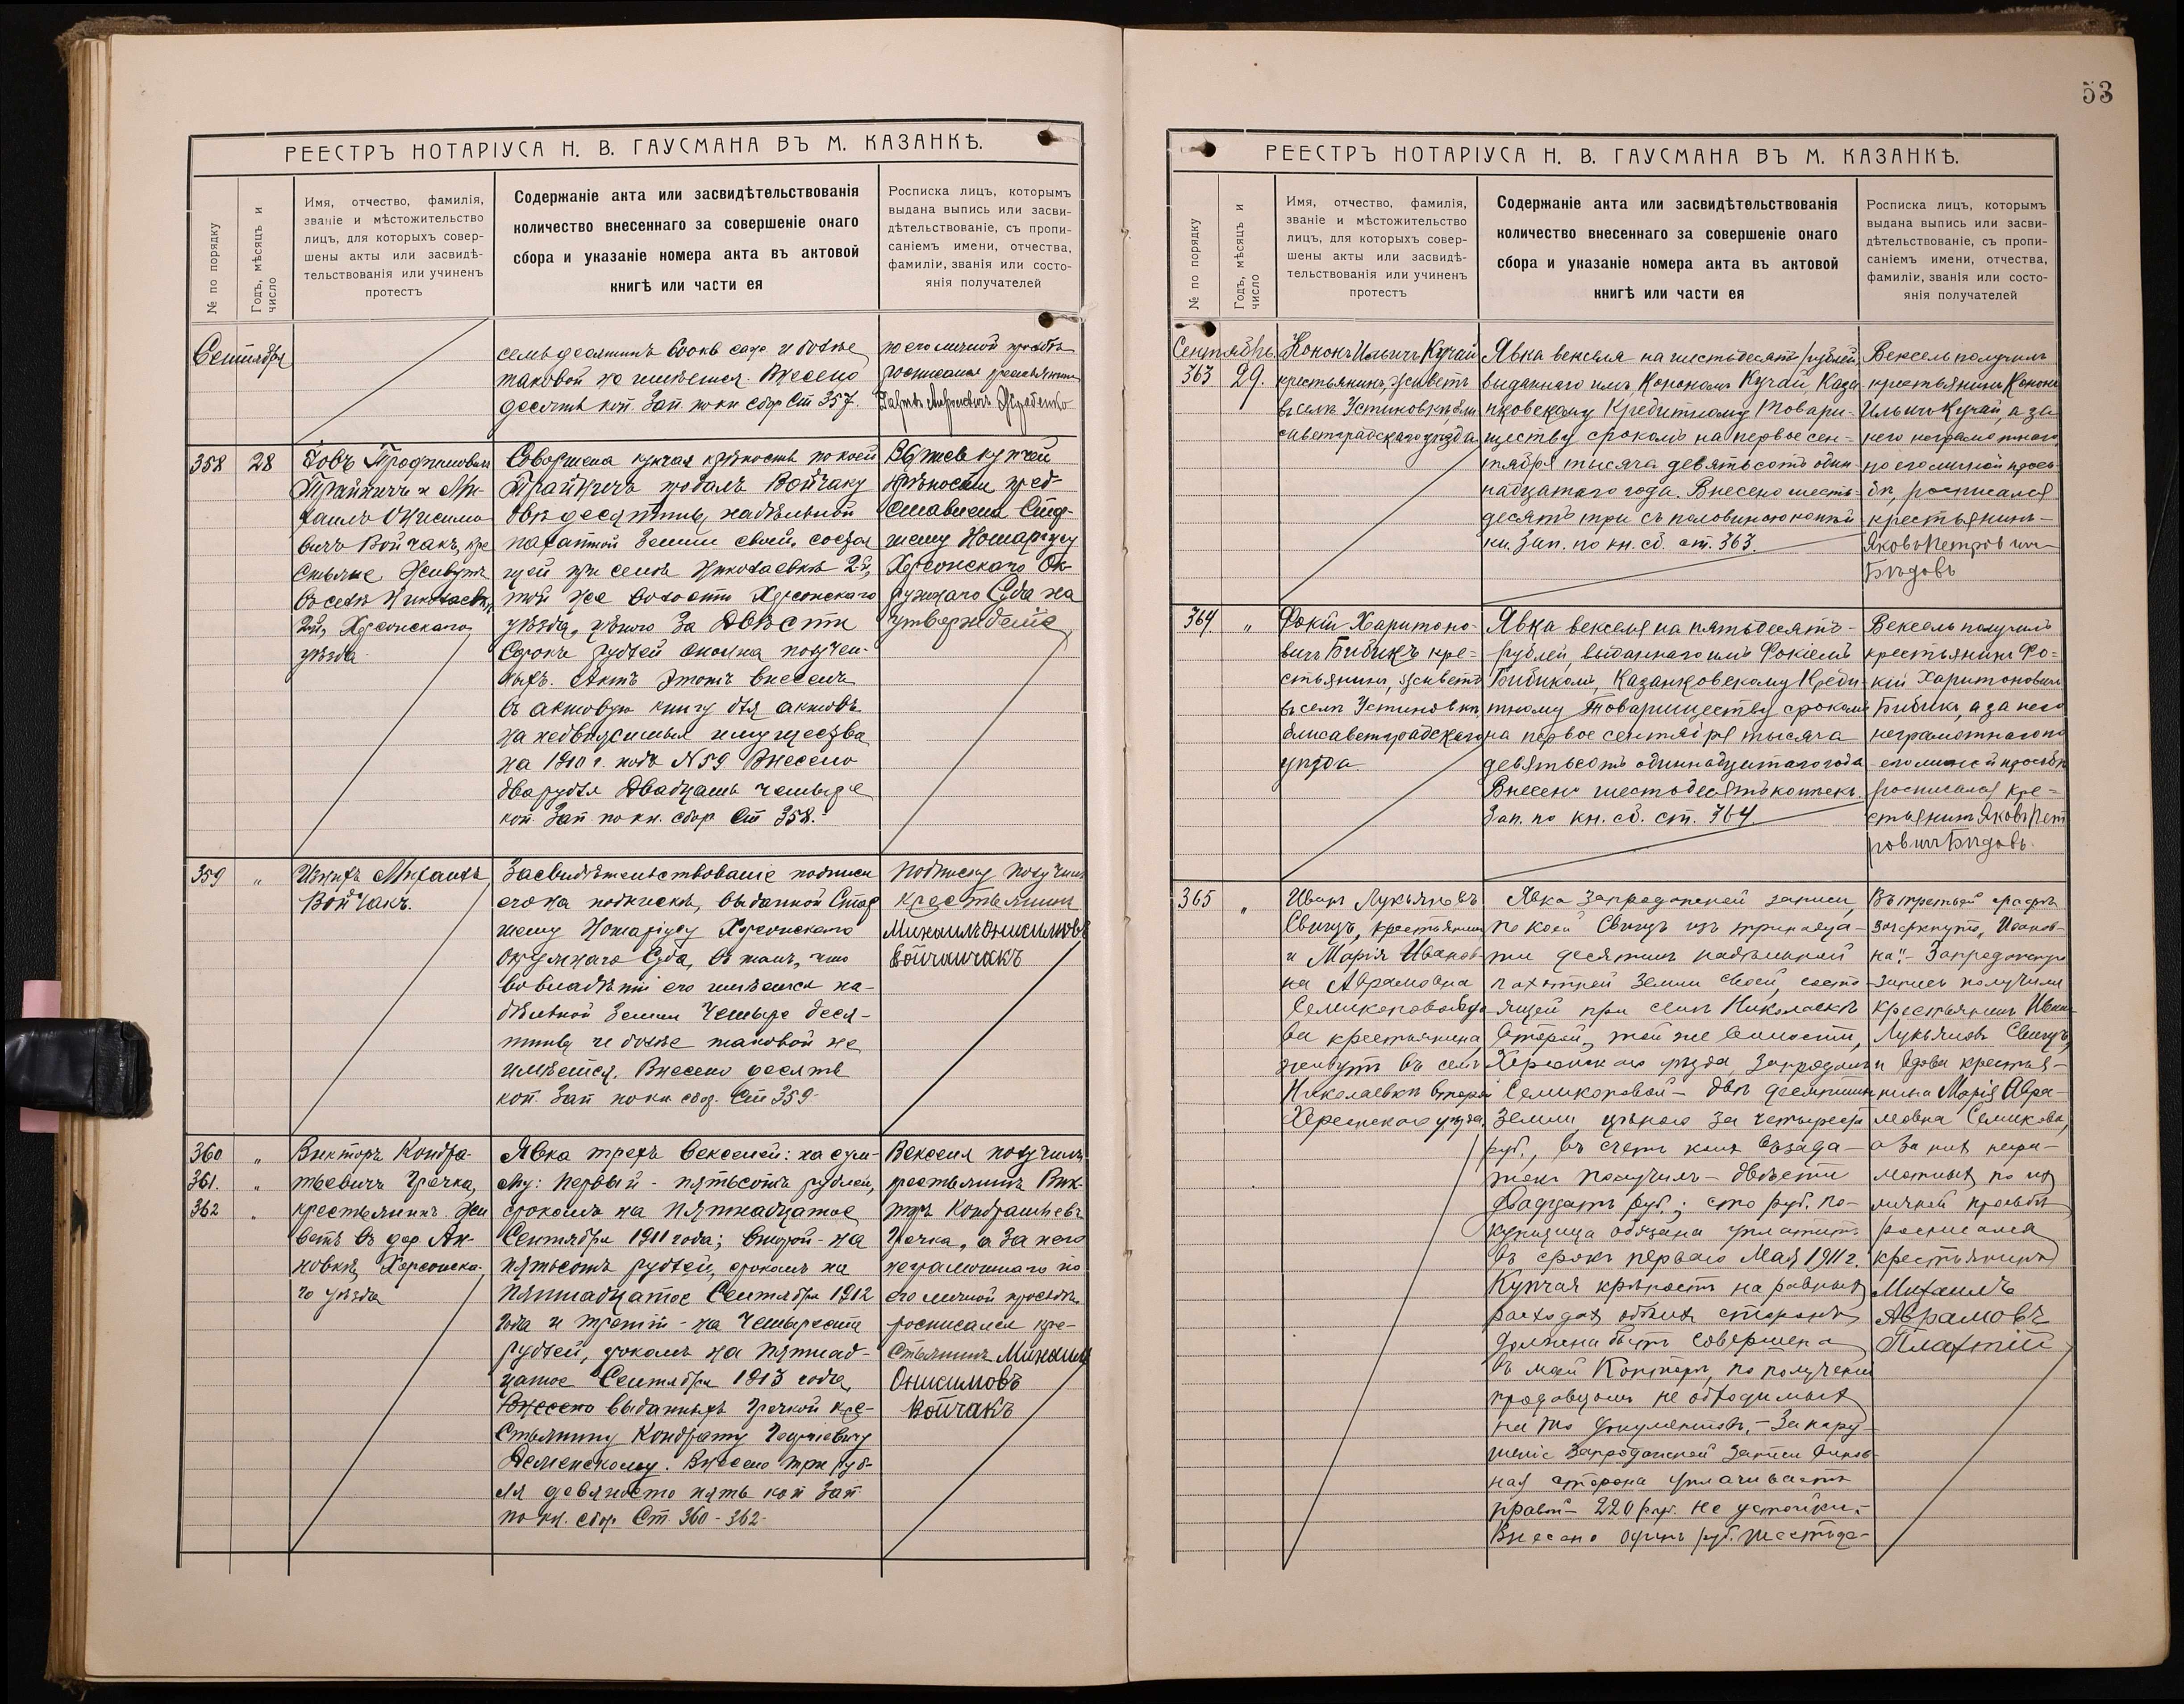 53
РЕЕСТРЪ НОТАРІУСА Н. В. ГАУСМАНА ВЪ М. КАЗАНКѢ.
№ по порядку
Годъ, мѣсяцъ и число
Имя, отчество, фамилія,
званіе и мѣстожительство
лицъ, для которыхъ совер-
шены акты или засвидѣ-
тельствованія или учиненъ
протестъ
Содержаніе акта или засвидѣтельствованія
количество внесеннаго за совершеніе онаго
сбора и указаніе номера акта въ актовой
книгѣ или части ея
Росписка лицъ, которымъ
выдана выпись или засви-
дѣтельствованіе, съ пропи-
саніемъ имени, отчества,
фамиліи, званія или состо-
янія получателей
Сентября
семь десятинъ сада и болѣе
таковой не имѣется. Внесено
десять коп. Зап. по кн. сбор. Ст. 357.
по его личной просьбѣ
росписался крестьянинъ
358 28
Іовъ Трофимовичъ
и Ми-
хаилъ Онисимо-
вичъ Войчакъ, кре-
стьяне, живутъ
въ селѣ Николаевкѣ
2й, Херсонскаго
уѣзда
Совершена купчая крѣпость по коей
продалъ Войчаку
двѣ десятины надѣльной
пахатной земли своей, состоя-
щей при селѣ Николаевкѣ 2-й,
той же волости Херсонскаго
уѣзда, цѣною за двѣсти
сорокъ рублей сполна получен-
ныхъ. Актъ этотъ внесенъ
въ актовую книгу для актовъ
на недвижимыя имущества
на 1910 г. подъ N 59 Внесено
два рубля двадцать четыре
коп. Зап. по кн. сбор. Ст 358.
купчей
крѣпости пред-
ставлена Стар-
шему Нотаріусу
Херсонскаго Ок-
ружнаго Суда на
утвержденіе
359 "
Михаилъ
Войчакъ.
Засвидѣтельствованіе подписи
его на подпискѣ, выданной Стар-
шему Нотаріусу Херсонскаго
Окружнаго Суда, въ томъ, что
во владѣніи его имѣется на-
дѣльной земли четыре деся-
тины и болѣе таковой не
имѣется. Внесено десять
коп. Зап по кн сбор. Ст 359.
Подписку получилъ
крестьянинъ
Михаилъ Онисимовъ
360 "
361. "
362 "
Викторъ Кондра-
тьевичъ Гречка,
крестьянинъ. Жи-
ветъ въ дер. Ан-
новкѣ, Херсонска-
го уѣзда
Явка трехъ векселей: на сум-
му: первый - пятьсотъ рублей,
срокомъ на пятнадцатое
Сентября 1911 года; второй - на
пятьсотъ рублей, срокомъ на
пятнадцатое Сентября 1912
года и третій - на четыреста
рублей, срокомъ на пятнад-
цатое Сентября 1913 года,
Внесено выданныхъ Гречкой кре-
стьянину Кондрату
Деменскому. Внесено три руб-
ля девяносто пять коп Зап
по кн. сбор Ст. 360 - 362.
Векселя получилъ
крестьянинъ Вик-
торъ Кондратьевъ
Гречка, а за него
неграмотнаго по
его личной просьбѣ
росписался кре-
стьянинъ Михаилъ
Онисимовъ
Войчакъ
РЕЕСТРЪ НОТАРІУСА Н. В. ГАУСМАНА ВЪ М. КАЗАНКѢ.
№ по порядку
Годъ, мѣсяцъ и число
Имя, отчество, фамилія,
званіе и мѣстожительство
лицъ, для которыхъ совер-
шены акты или засвидѣ-
тельствованія или учиненъ
протестъ
Содержаніе акта или засвидѣтельствованія
количество внесеннаго за совершеніе онаго
сбора и указаніе номера акта въ актовой
книгѣ или части ея
Росписка лицъ, которымъ
выдана выпись или засви-
дѣтельствованіе, съ пропи-
саніемъ имени, отчества,
фамиліи, званія или состо-
янія получателей
Сентябрь
363 29.
Кононъ Ильичъ Кучай
крестьянинъ, живетъ
въ селѣ Устиновкѣ, Ели-
саветградскаго уѣзда
Явка векселя на шестьдесятъ рублей,
выданнаго имъ, Конономъ Кучай Каза-
нковскому Кредитному Товари-
ществу срокомъ на первое сен-
тября тысяча девятьсотъ один-
надцатаго года. Внесено шесть-
десятъ три съ половиною копѣй
ки. Зап. по кн. сб. ст. 363.
Вексель получилъ
крестьянинъ Кононъ
Ильичъ Кучай, а за
него неграмотнаго
по его личной прось-
бѣ, росписался
крестьянинъ -
Яковъ Петровичъ
Бѣдовъ
364. "
Фокій Харитоно-
вичъ Бибикъ кре-
стьянинъ, живетъ
въ селѣ Устиновкѣ,
Елисаветградскаго
уѣзда
Явка векселя на пятьдесятъ -
рублей, выданнаго имъ Фокіемъ
Бибикомъ, Казанковскому Креди-
тному Товариществу срокомъ
на первое сентября тысяча
девятьсотъ одиннадцатаго года
Внесено шестьдесятъ копѣекъ.
Зап. по кн. сб. ст. 364.
Вексель получилъ
крестьянинъ Фо-
кій Харитоновичъ
Бибикъ, а за него
неграмотнаго по
его личной просьбѣ
росписался кре-
стьянинъ Яковъ Пет
ровичъ Бѣдовъ.
365 "
Иванъ Лукьяновъ
Свищъ, крестьянинъ
и Марія Иванов-
на Аврамовна
Семикопова вдо-
ва крестьянина,
живутъ въ селѣ
Николаевкѣ второй
Херсонскаго уѣзда
Явка запродажной записи,
по коей Свищъ изъ тринадца-
ти десятинъ надѣльной
пахатной земли своей, состо-
ящей при селѣ Николаевкѣ
второй, той же волости,
Херсонскаго уѣзда, запродалъ
Семикоповой - двѣ десятины
земли, цѣною за четыреста
руб., въ счетъ коихъ въ зада-
токъ получилъ - двѣсти
двадцать руб.; сто руб. по-
купщица обязана уплатить
въ срокъ перваго Мая 1911 г.
Купчая крѣпость на равныхъ
расходахъ обѣихъ сторонъ
должна быть совершена
въ моей Конторѣ, по полученіи
продавцомъ необходимыхъ
на то документовъ. - За нару-
шеніе запродажной записи винов-
ная сторона уплачиваетъ
правой - 220 руб. неустойки. -
Внесено одинъ руб. шестьде-
Въ третьей графѣ
зачеркнуто „Иванов-
на". - Запродажную
запись получили
крестьянинъ Иванъ
Лукьяновъ Свищъ,
и вдова крестья-
нина Марія Авра-
мовна Семикопова,
а за нихъ негра-
мотныхъ по ихъ
личной просьбѣ
росписался
крестьянинъ
Михаилъ
Аврамовъ
Плахтій